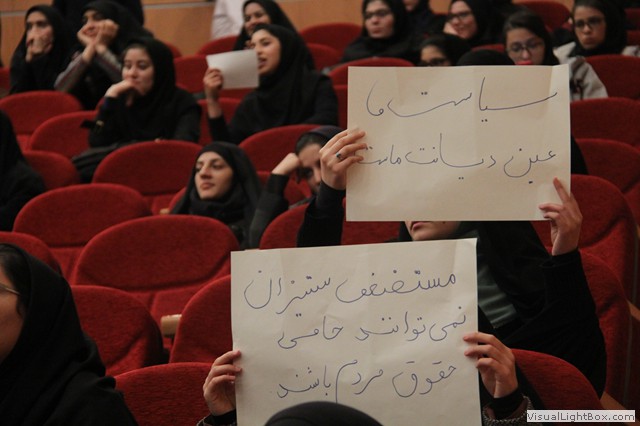 سیاست ما
عین دیانت ماست
مستضعف ستیزان
نمی‌توانند حامی
حقوق مردم باشند
VisualLightBox.com